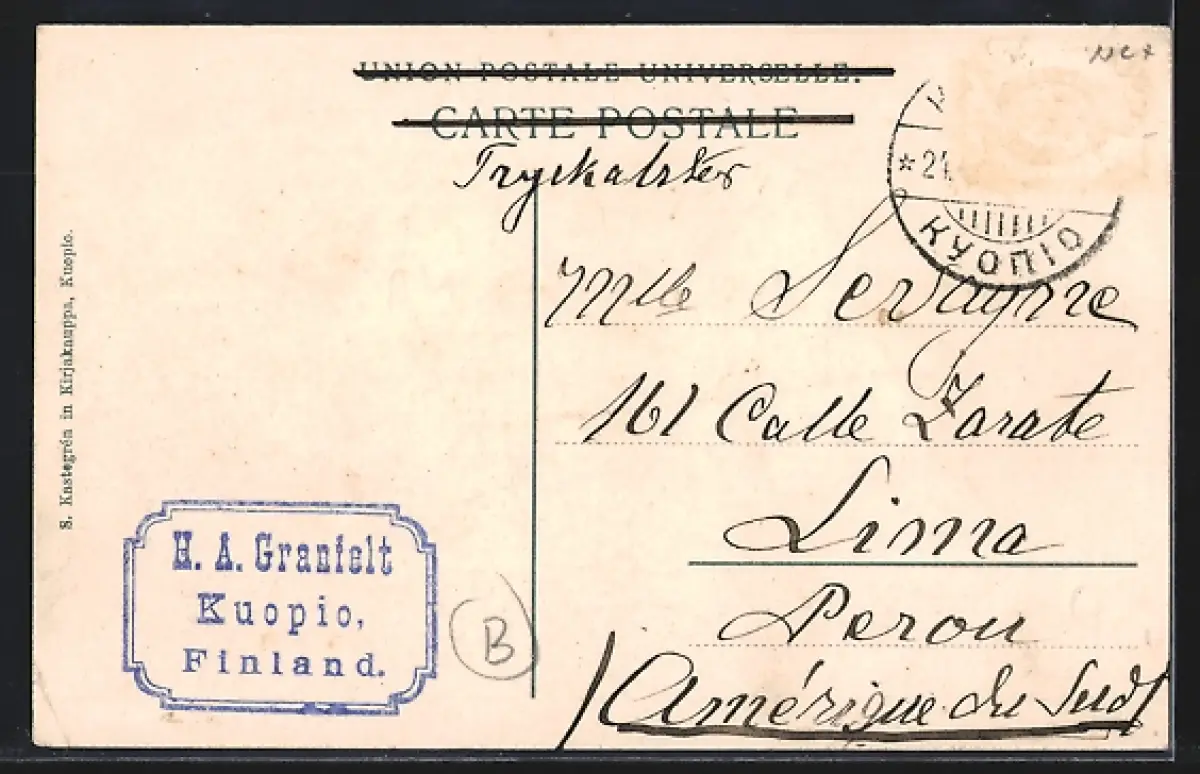 UNION POSTALE UNIVERSELLE.
CARTE POSTALE
*21.
КУОПІО
Mlle Servayne
161 Calle Zarate
Lima
Perou
(Amérique du Sud)
S. Kastegrén in Kirjakauppa, Kuopio.
H. A. Granfelt
Kuopio,
Finland.
B